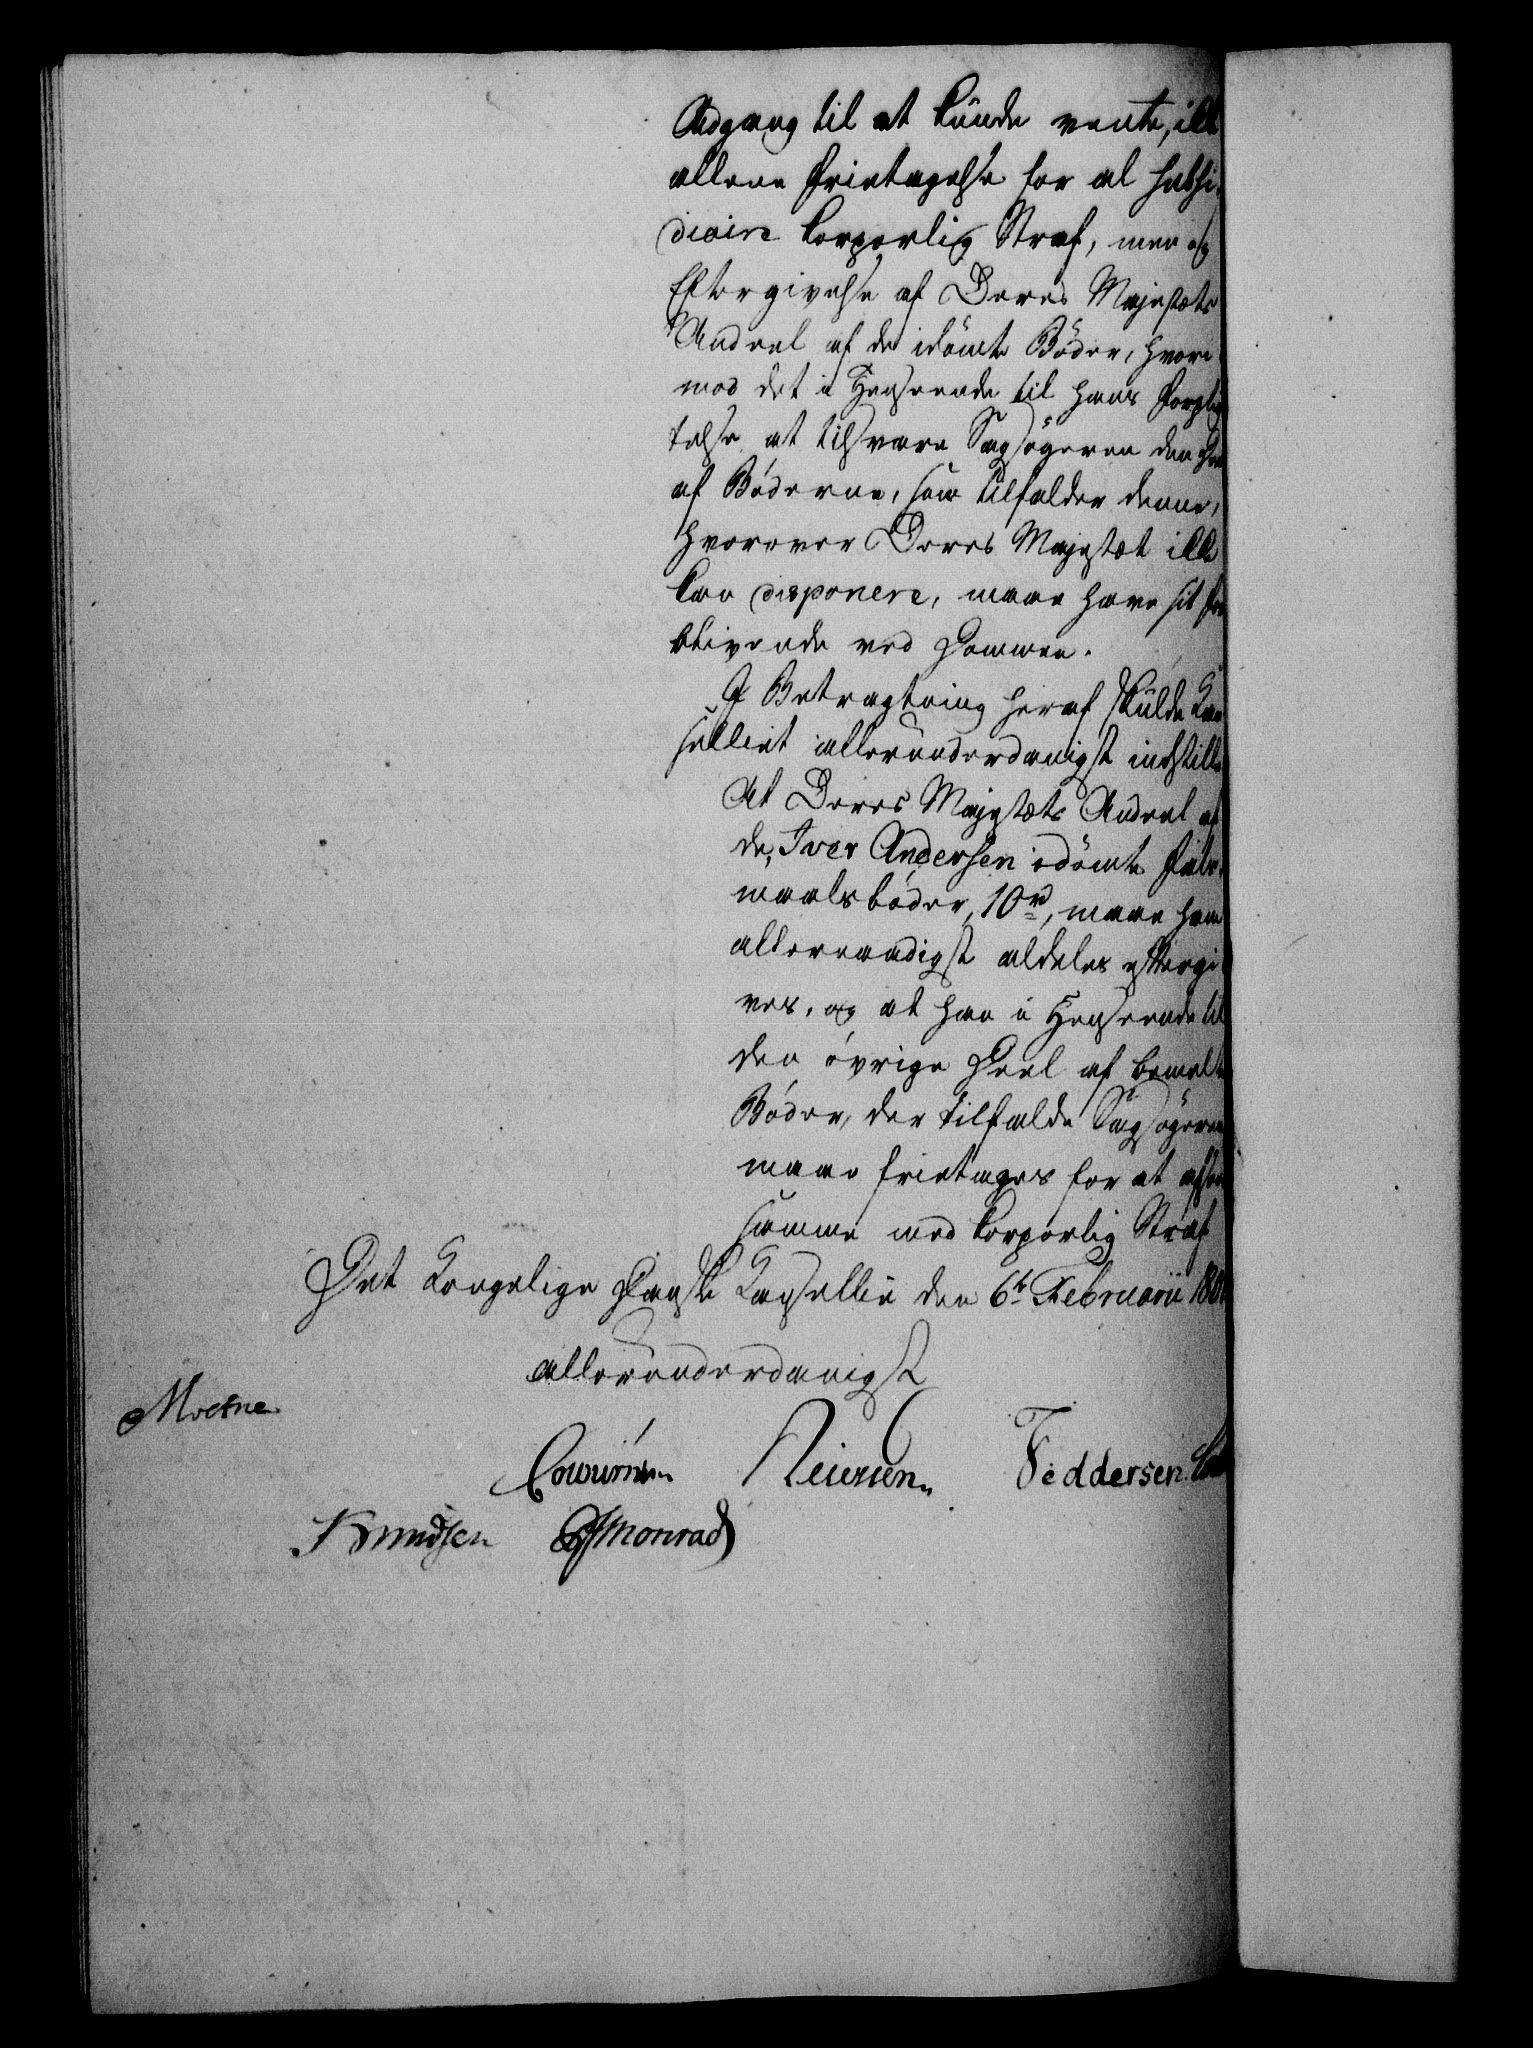 Adgang til at kunde vente, ikke
allene Fritagelse for al subsi-
diaire korporlig Straf, men og
Eftergivelse af Deres Majestæts
Andeel af de idömte Böder, hvori-
mod det i Henseende til hans Forplig
telse at tilsvare Sagsögeren den Deel
af Böderne, som tilfalder denne,
hvorover Deres Majestæt ikke
kan disponere, maae have sit For
blivende ved Dommen.
I Betragtning heraf skulde Kan
selliet allerunderdanigst indstille
At Deres Majestæts Andeel af
de, Iver Andersen idömte
maalsböder, 10 rd, maae ham
allernaadigst aldeles eftergi-
ves, og at han i Henseende til
den övrige Deel af bemeldte
Böder, der tilfalde Sagsögeren
maae fritages for at afsone
samme med korporlig Straf
Det Kongelige Danske Kansellie den 6te Februarii 180
allerunderdanigst
Moesne
Feddersen
Knudsen Monrad